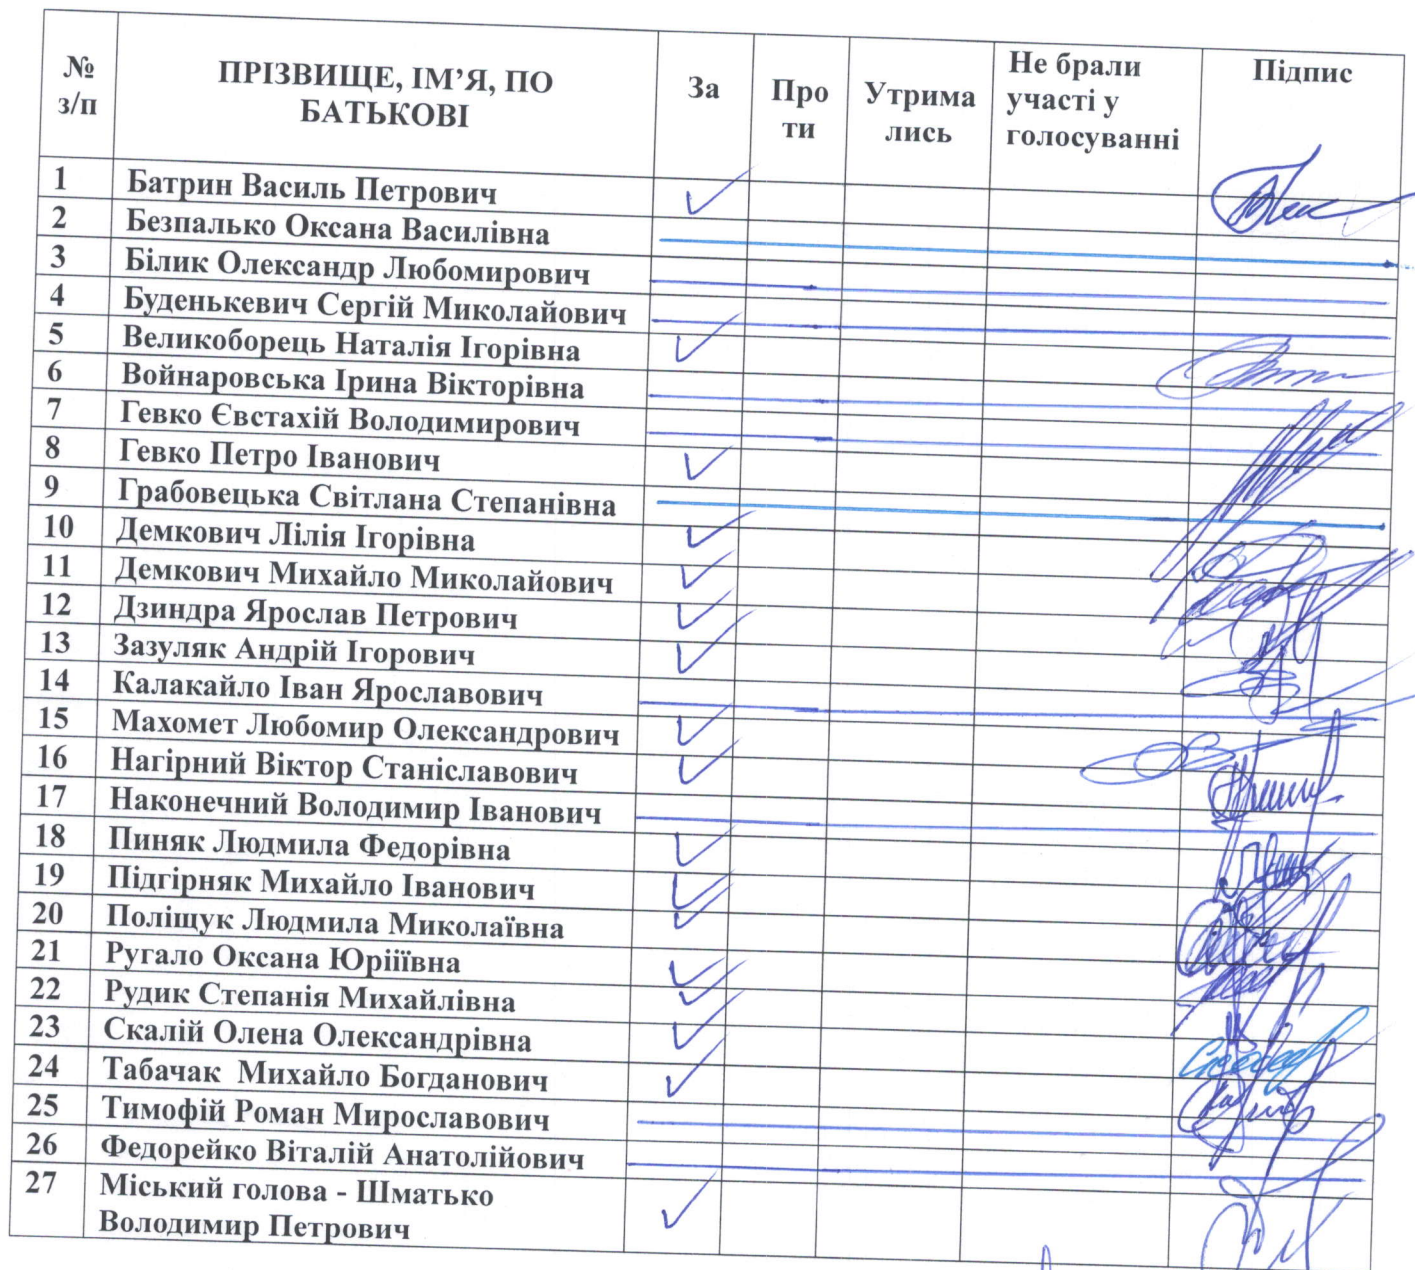 № з/п
ПРІЗВИЩЕ, ІМ’Я, ПО БАТЬКОВІ
За
Про ти
Утрима лись
Не брали участі у голосуванні
Підпис
1 Батрин Василь Петрович
2 Безпалько Оксана Василівна
3 Білик Олександр Любомирович
4 Буденькевич Сергій Миколайович
5 Великоборець Наталія Ігорівна
6 Войнаровська Ірина Вікторівна
7 Гевко Євстахій Володимирович
8 Гевко Петро Іванович
9 Грабовецька Світлана Степанівна
10 Демкович Лілія Ігорівна
11 Демкович Михайло Миколайович
12 Дзиндра Ярослав Петрович
13 Зазуляк Андрій Ігорович
14 Калакайло Іван Ярославович
15 Махомет Любомир Олександрович
16 Нагірний Віктор Станіславович
17 Наконечний Володимир Іванович
18 Пиняк Людмила Федорівна
19 Підгірняк Михайло Іванович
20 Поліщук Людмила Миколаївна
21 Ругало Оксана Юріїівна
22 Рудик Степанія Михайлівна
23 Скалій Олена Олександрівна
24 Табачак Михайло Богданович
25 Тимофій Роман Мирославович
26 Федорейко Віталій Анатолійович
27 Міський голова - Шматько
Володимир Петрович